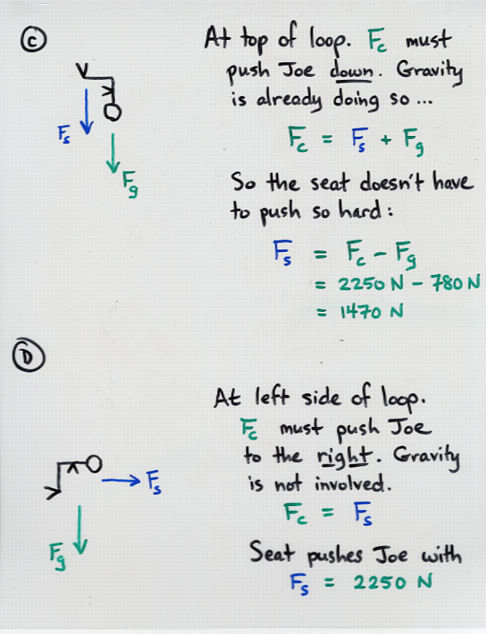 C
At top of loop. Fc must
push Joe down. Gravity
is already doing so ...
Fs
Fc = Fs + Fg
Fg
So the seat doesn't have
to push so hard:
Fs = Fc - Fg
= 2250 N - 780 N
= 1470 N
D
At left side of loop.
Fc must push Joe
to the right. Gravity
is not involved.
Fs
Fc = Fs
Fg
Seat pushes Joe with
Fs = 2250 N